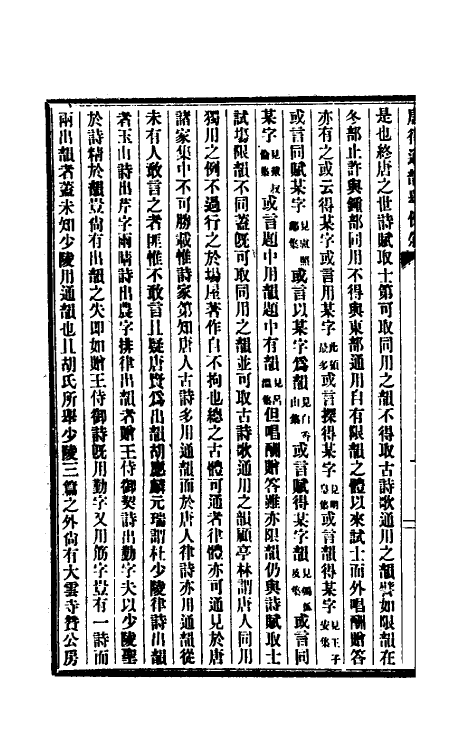 是也終唐之世詩賦取士第可取同用之韻不得取古詩歌通用之韻譬如限韻在
冬部止許與鍾部同用不得與東部通用自有限韻之體以來試士而外唱酬贈答
亦有之或云得某字或言用某字此類最多或言探得某字見明皇集或言韻得某字見王子安集
或言同賦某字見盧照鄰集或言以某字爲韻見白香山集或言賦得某字韻見獨孤及集或言同
某字見戴叔倫集或言題中用韻題中有韻見呂溫集但唱酬贈答雖亦限韻仍與詩賦取士
試塲限韻不同蓋旣可取同用之韻並可取古詩歌通用之韻顧亭林謂唐人同用
獨用之例不過行之於塲屋著作自不拘也總之古體可通者律體亦可通見於唐
諸家集中不可勝載惟詩家第知唐人古詩多用通韻而於唐人律詩亦用通韻從
未有人敢言之者匪惟不敢言且疑唐賢爲出韻胡應麟元瑞謂杜少陵律詩出韻
者玉山詩出芹字雨晴詩出農字排律出韻者贈王侍御契詩出勤字夫以少陵聖
於詩精於韻豈尙有出韻之失卽如贈王侍御詩旣用勤字又用筋字豈有一詩而
兩出韻者蓋未知少陵用通韻也且胡氏所舉少陵三篇之外尙有大雲寺贊公房